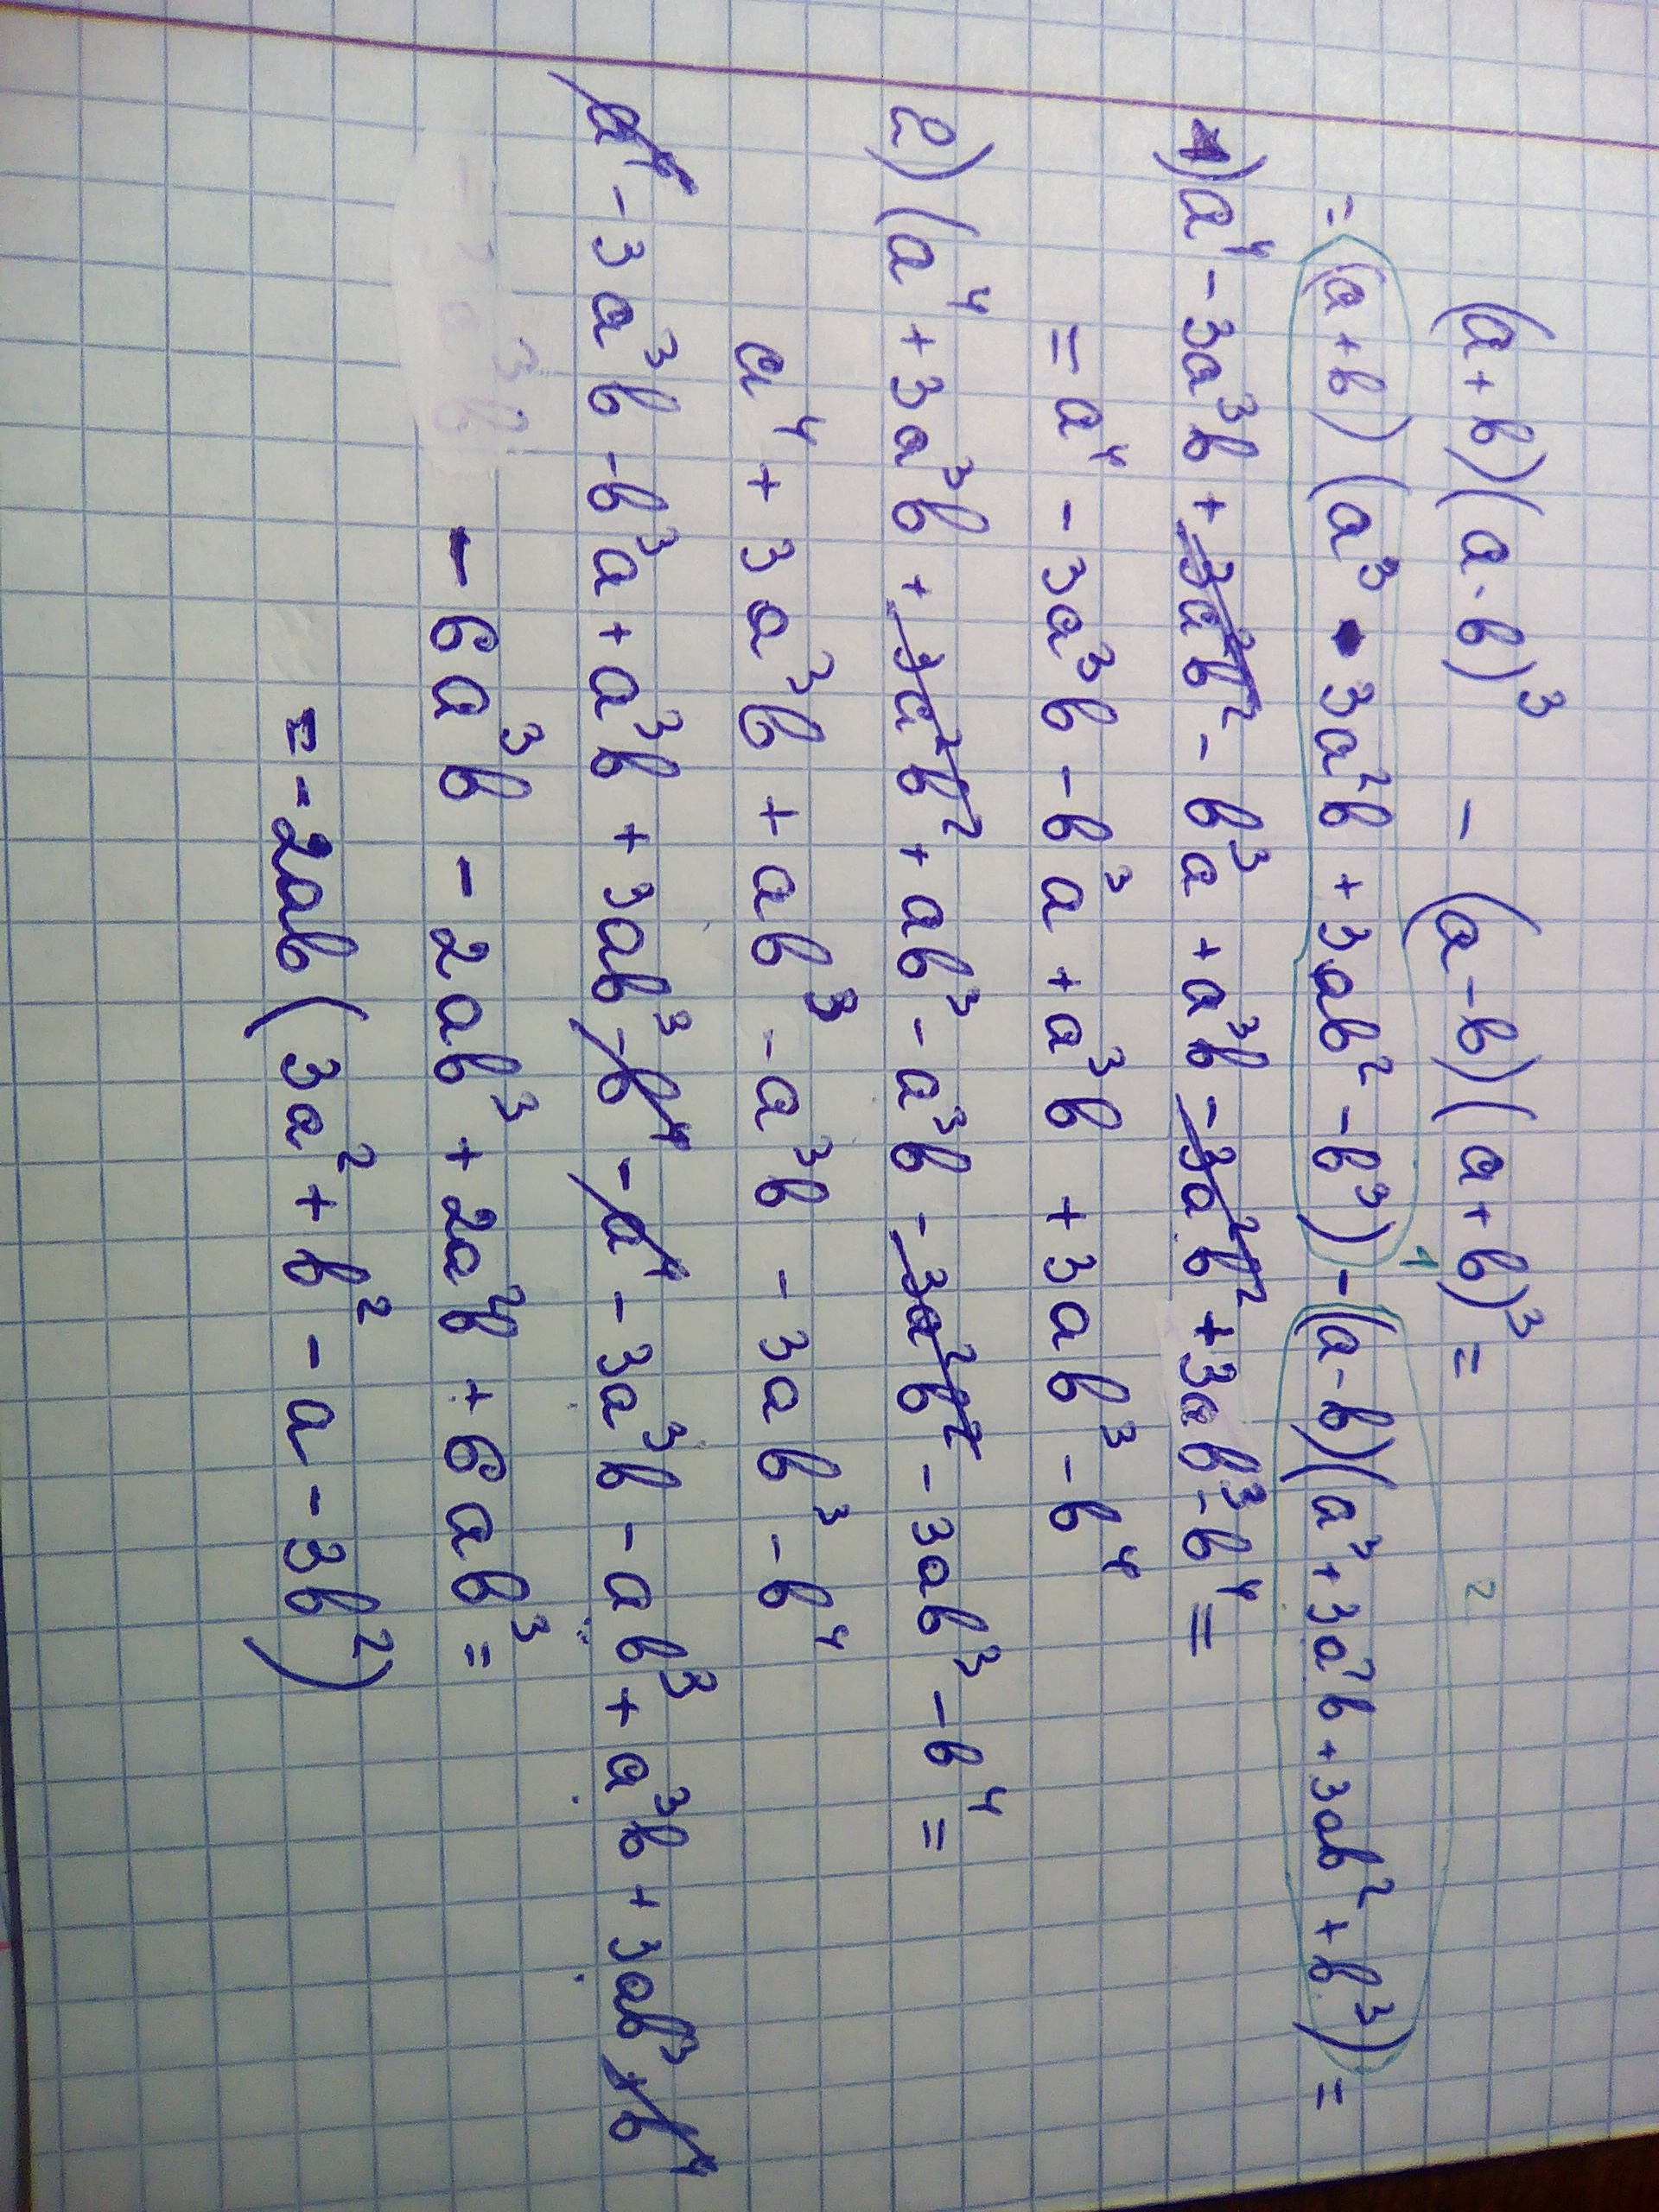 (a+b)(a-b)³ - (a-b)(a+b)³ =
= (a+b)(a³ - 3a²b + 3ab² - b³) - (a-b)(a³ + 3a²b + 3ab² + b³) =
1 2
1) a⁴ - 3a³b + 3a²b² - b³a + a³b - 3a²b² + 3ab³ - b⁴ =
= a⁴ - 3a³b - b³a + a³b + 3ab³ - b⁴
2) (a⁴ + 3a³b + 3a²b² + ab³ - a³b - 3a²b² - 3ab³ - b⁴ =
a⁴ + 3a³b + ab³ - a³b - 3ab³ - b⁴
a⁴ - 3a³b - b³a + a³b + 3ab³ - b⁴ - a⁴ - 3a³b - ab³ + a³b + 3ab³ + b⁴
- 6a³b - 2ab³ + 2a²b + 6ab³ =
= -2ab(3a² + b² - a - 3b²)